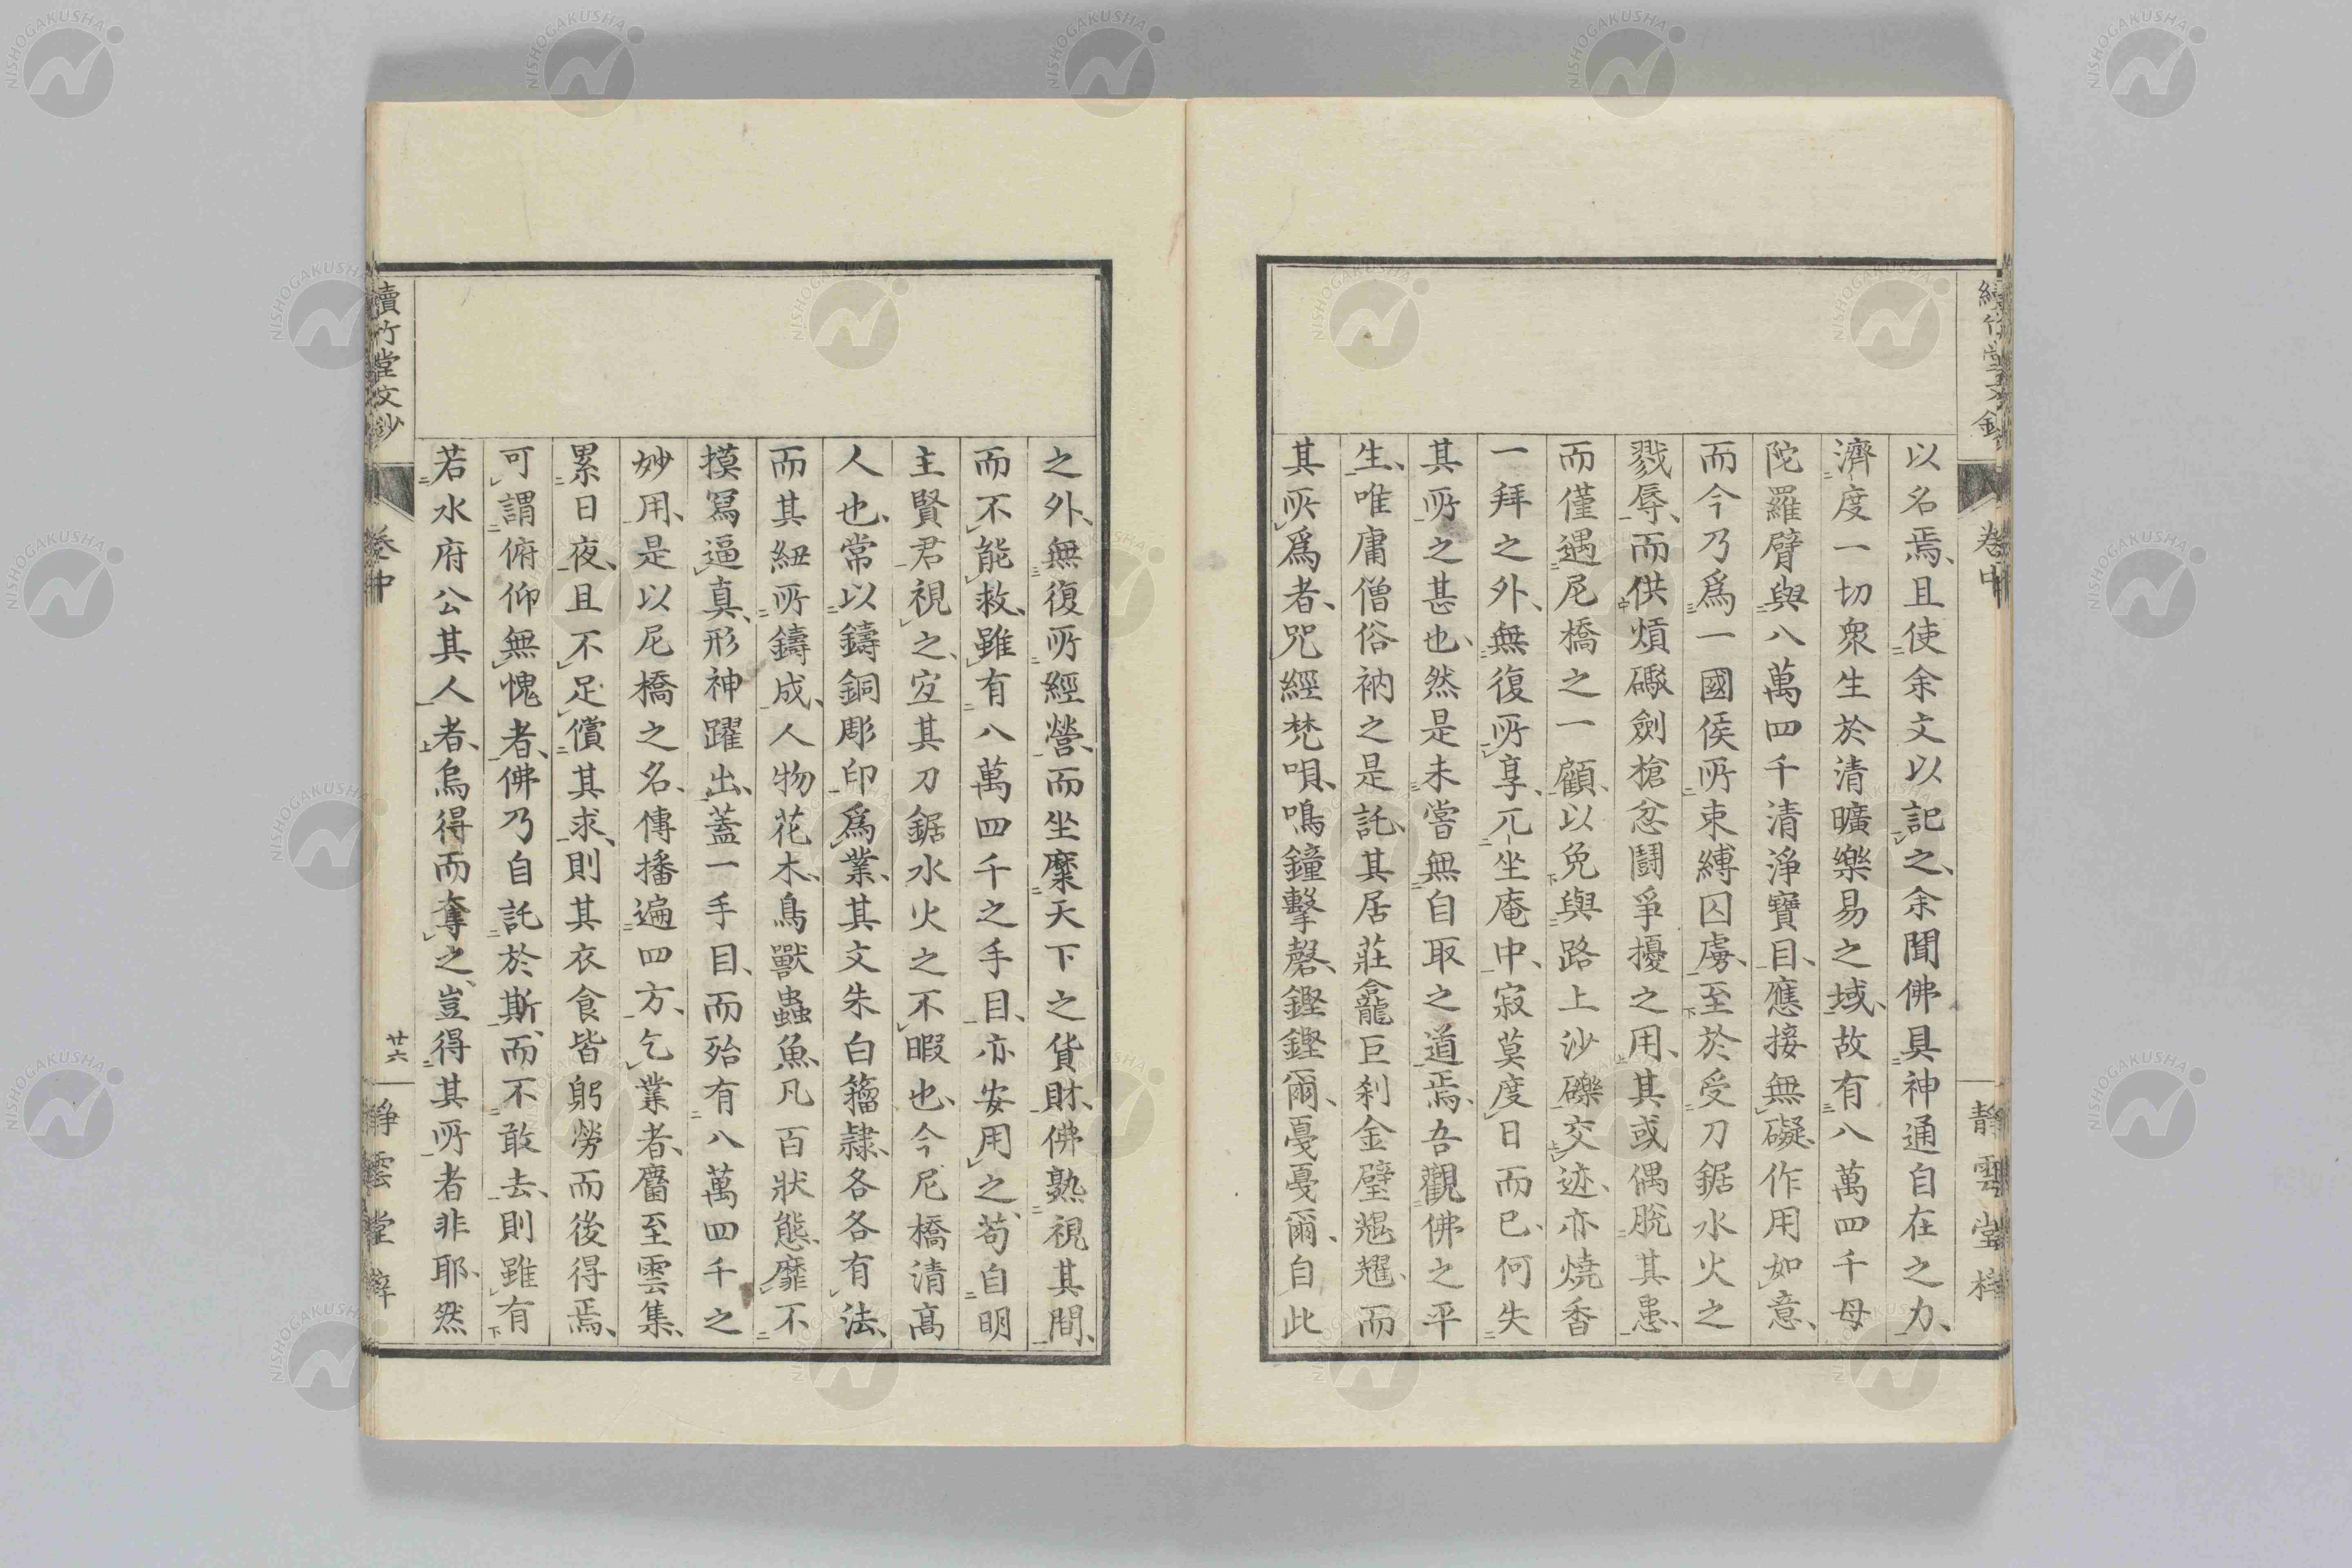 以名焉、且使余文以記之、余聞佛具神通自在之力、
濟度一切衆生於清曠樂易之域、故有八萬四千母
陀羅臂與八萬四千清淨寶目、應接無礙、作用如意、
而今乃爲一國侯所束縛囚虜、至於受刀鋸水火之
戮辱、而供煩礮劍槍忿鬪爭擾之用、其或偶脫其患、
而僅遇尼橋之一顧、以免與路上沙礫交迹、亦燒香
一拜之外、無復所享、兀坐庵中、寂莫度日而已、何失
其所之甚也、然是未嘗無自取之道焉、吾觀佛之平
生、唯庸僧俗衲之是託、其居莊龕巨刹金璧焜耀、而
其所爲者、咒經梵唄、鳴鐘擊磬、鏗鏗爾、戞戞爾、自此
之外、無復所經營、而坐糜天下之貨財、佛熟視其間、
而不能救、雖有八萬四千之手目、亦安用之、苟自明
主賢君視之、宜其刀鋸水火之不暇也、今尼橋清高
人也、常以鑄銅彫印爲業、其文朱白籀隷、各各有法、
而其紐所鑄成、人物花木、鳥獸蟲魚、凡百狀態、靡不
摸寫逼真、形神躍出、蓋一手目、而殆有八萬四千之
妙用、是以尼橋之名、傳播遍四方、乞業者、麕至雲集、
累日夜、且不足償其求、則其衣食皆躬勞而後得焉、
可謂俯仰無愧者、佛乃自託於斯、而不敢去、則雖有
若水府公其人者、烏得而奪之、豈得其所者非耶、然
讀竹堂文鈔
卷中
廿六
靜雲堂梓
NISHOGAKUSHA